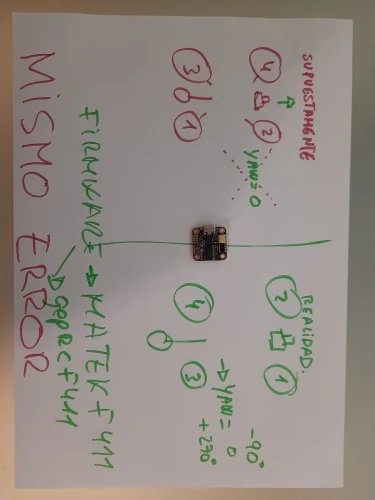 SUPUESTAMENTE
4 2
YAW = 0
3 1
REALIDAD.
2 1
4 3
→ YAW = 0
-90°
+270°
FIRMWARE → MATEKF411
→ GEPRCF411
MISMO ERROR